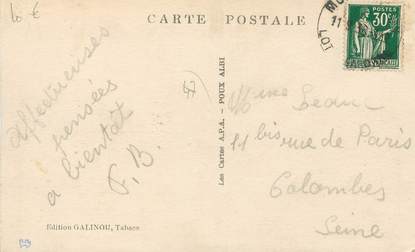 10 €
CARTE POSTALE
LOT
11
POSTES
30c
affectueuses
pensées
a bientôt
F. B.
Les Cartes A.P.A. - POUX ALBI
Jeanc
11 bis rue de Paris
Colombes
Seine
Edition GALINOU, Tabacs